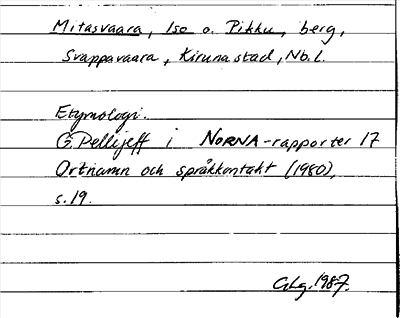 Mitasvaara, Iso o. Pikku, berg,
Svappavaara, Kiruna stad, Nb. l.
Etymologi.
G. Pellijeff i NORNA-rapporter 17
Ortnamn och språkkontakt (1980),
s. 19.
1987.